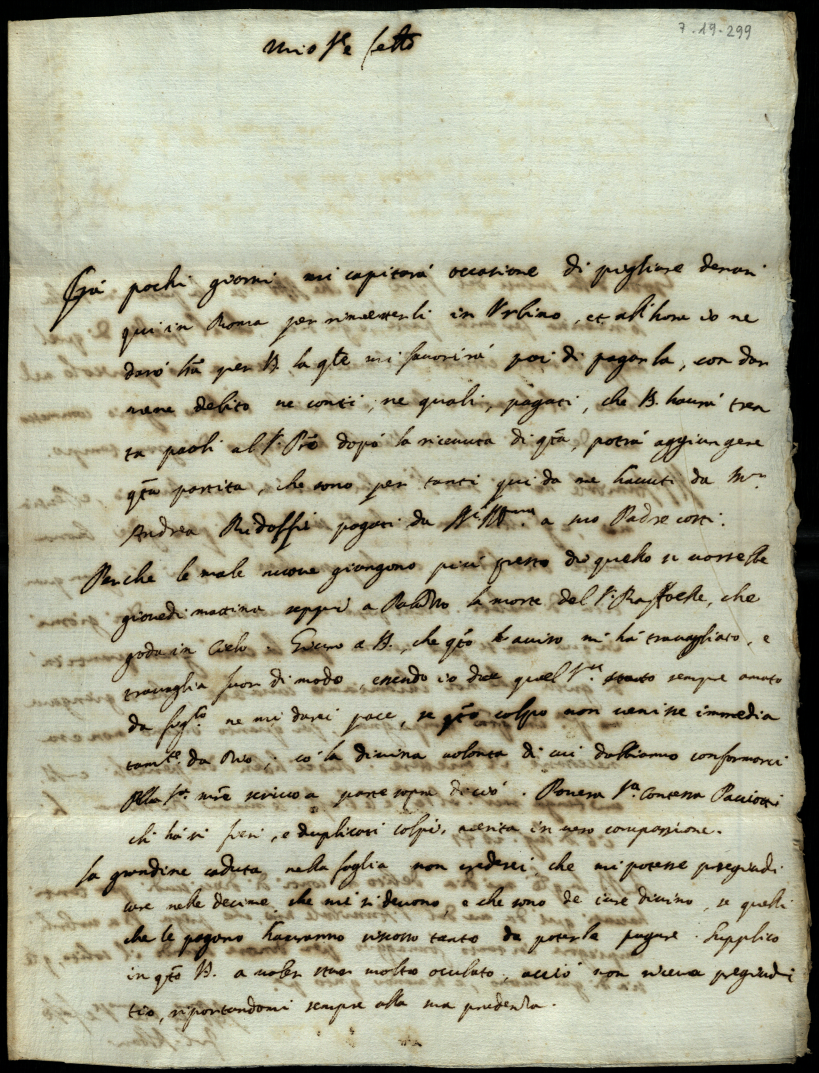 7-19-299
mio Sre
Frà pochi giorni mi capitarà occasione di pigliare denari
qui in Roma per rimetterli in Urbino, et all'hora io ne
darò per la qle mi favorirà poi di pagarla, con dar
mene debito ne conti, ne quali, pagati, che havrà tren
ta paoli al doppò la ricevuta di qta, potrà aggiungere
qta partita, che sono per tanti qui da me havuti da
Andrea Ridolfi pagati da a suo Padre costì.
Perche le male nuove giongono più presto di quello si vorrebbe
giovedi mattina seppi a la morte del che
goda in Cielo. a che qto aviso mi hà travagliato, e
travaglia fuor di modo, essendo io da quel stato sempre amato
da ne mi darei pace, se qto colpo non venisse immedia
tamte da Dio. cò la divina volontà di cui dobbiamo conformarci
Alla Sra scrivo a parte sopra di ciò. Povera Sra Contessa Paciotti
ch' hà sì fieri, e duplicati colpi, merita in vero compassione.
La grandine caduta nella foglia non crederei che mi potesse pregiudi
care nelle decime che mi si devono, e che sono de iure divino, se quelli
che le pagano havranno riscosso tanto da poterle pagare. Supplico
in qto a voler star molto oculato, acciò non riceva pregiudi
tio, riportandomi sempre alla sua prudenza.